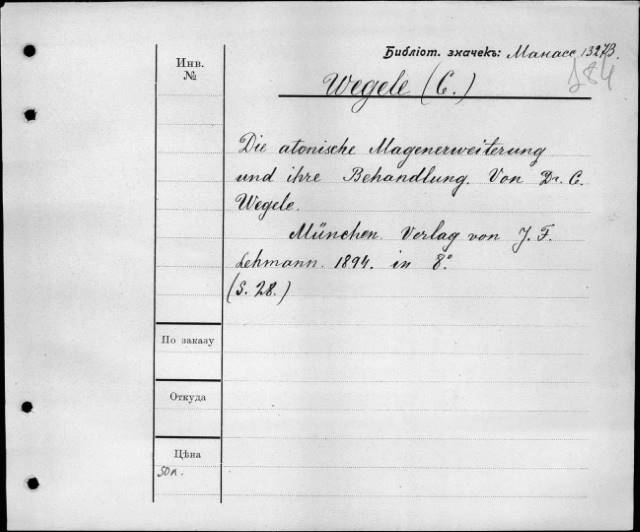 Библіот. значекъ: Манасс. 1327/3.
284
Инв.
№
Wegele (C.)
Die atonische Magenerweiterung
und ihre Behandlung. Von Dr. C.
Wegele.
München. Verlag von J. F.
Lehmann. 1894. in 8.°
(S. 28.)
По заказу
Откуда
Цѣна
50 к.